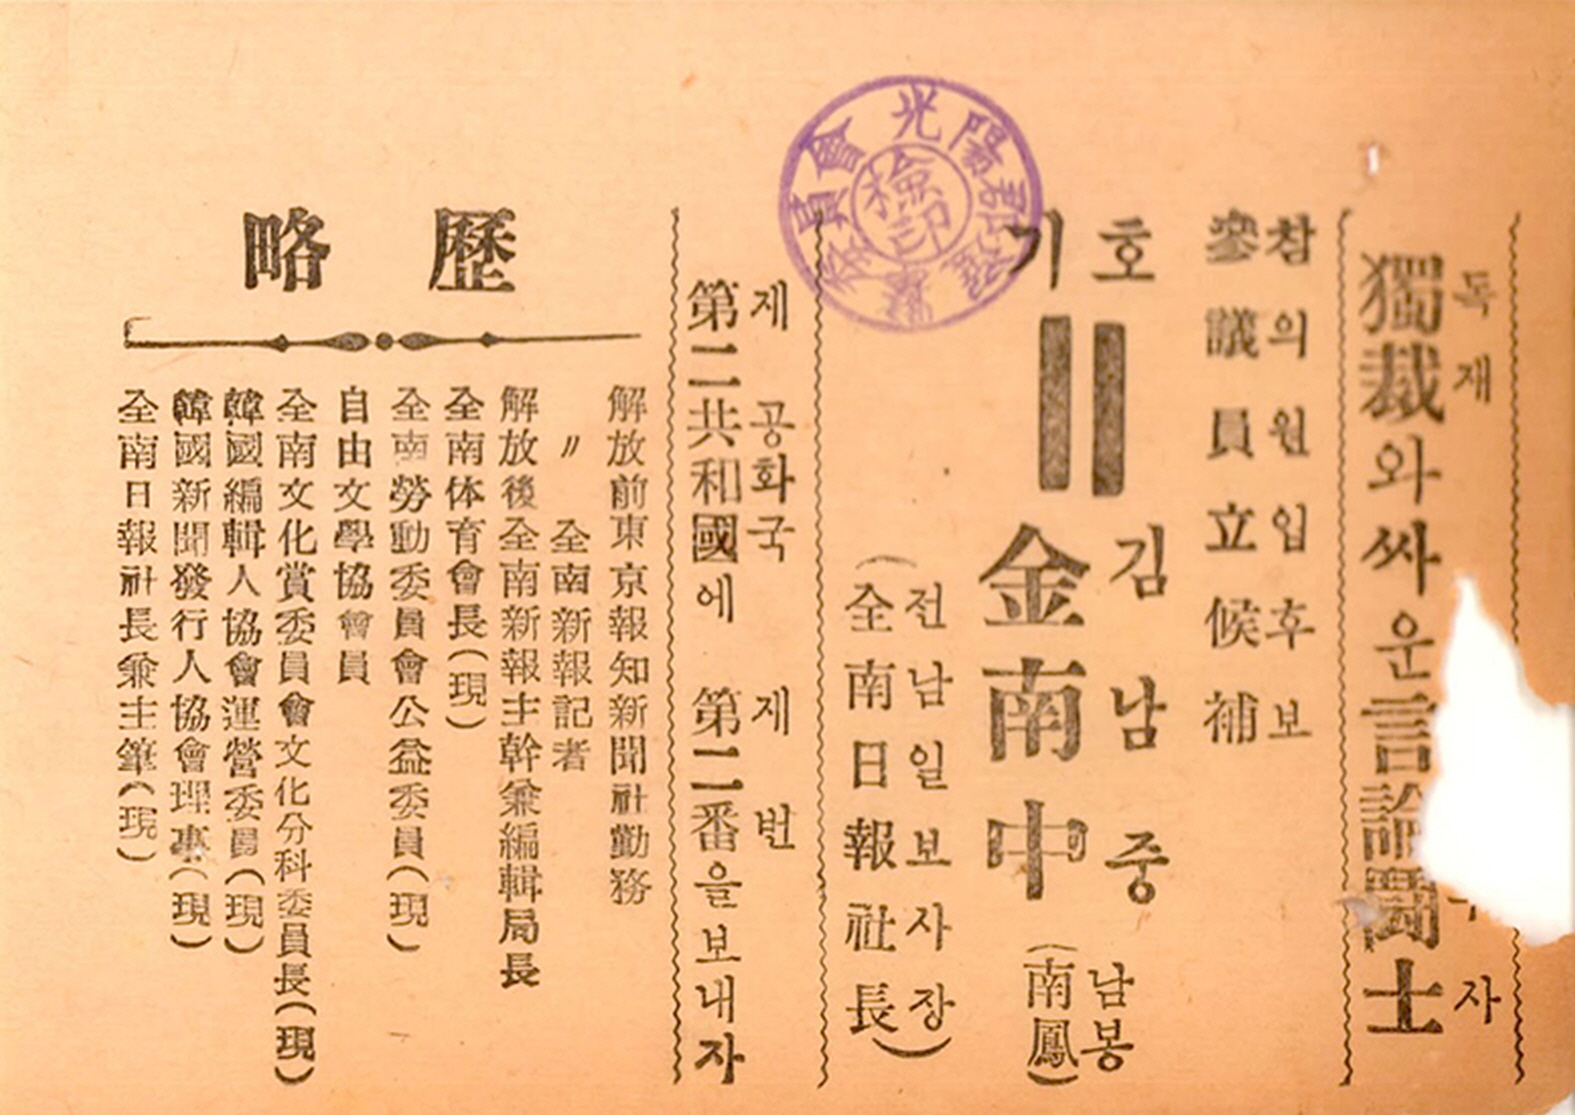 독재 자
獨裁와 싸운 言論鬪士
참의원입후보
參議員立候補
호 김남중 남봉
기 || 金南中 (南鳳)
전남일보사장
(全南日報社長)
제 공화국 제 번
第二共和國에 第二番을 보내자
歷略
解放前東京報知新聞社勤務
〃 全南新報記者
解放後全南新報主幹兼編輯局長
全南体育會長(現)
全南勞動委員會公益委員(現)
自由文學協會員
全南文化賞委員會文化分科委員長(現)
韓國編輯人協會運營委員(現)
韓國新聞發行人協會理事(現)
全南日報社長兼主筆(現)
光陽
員會
檢印